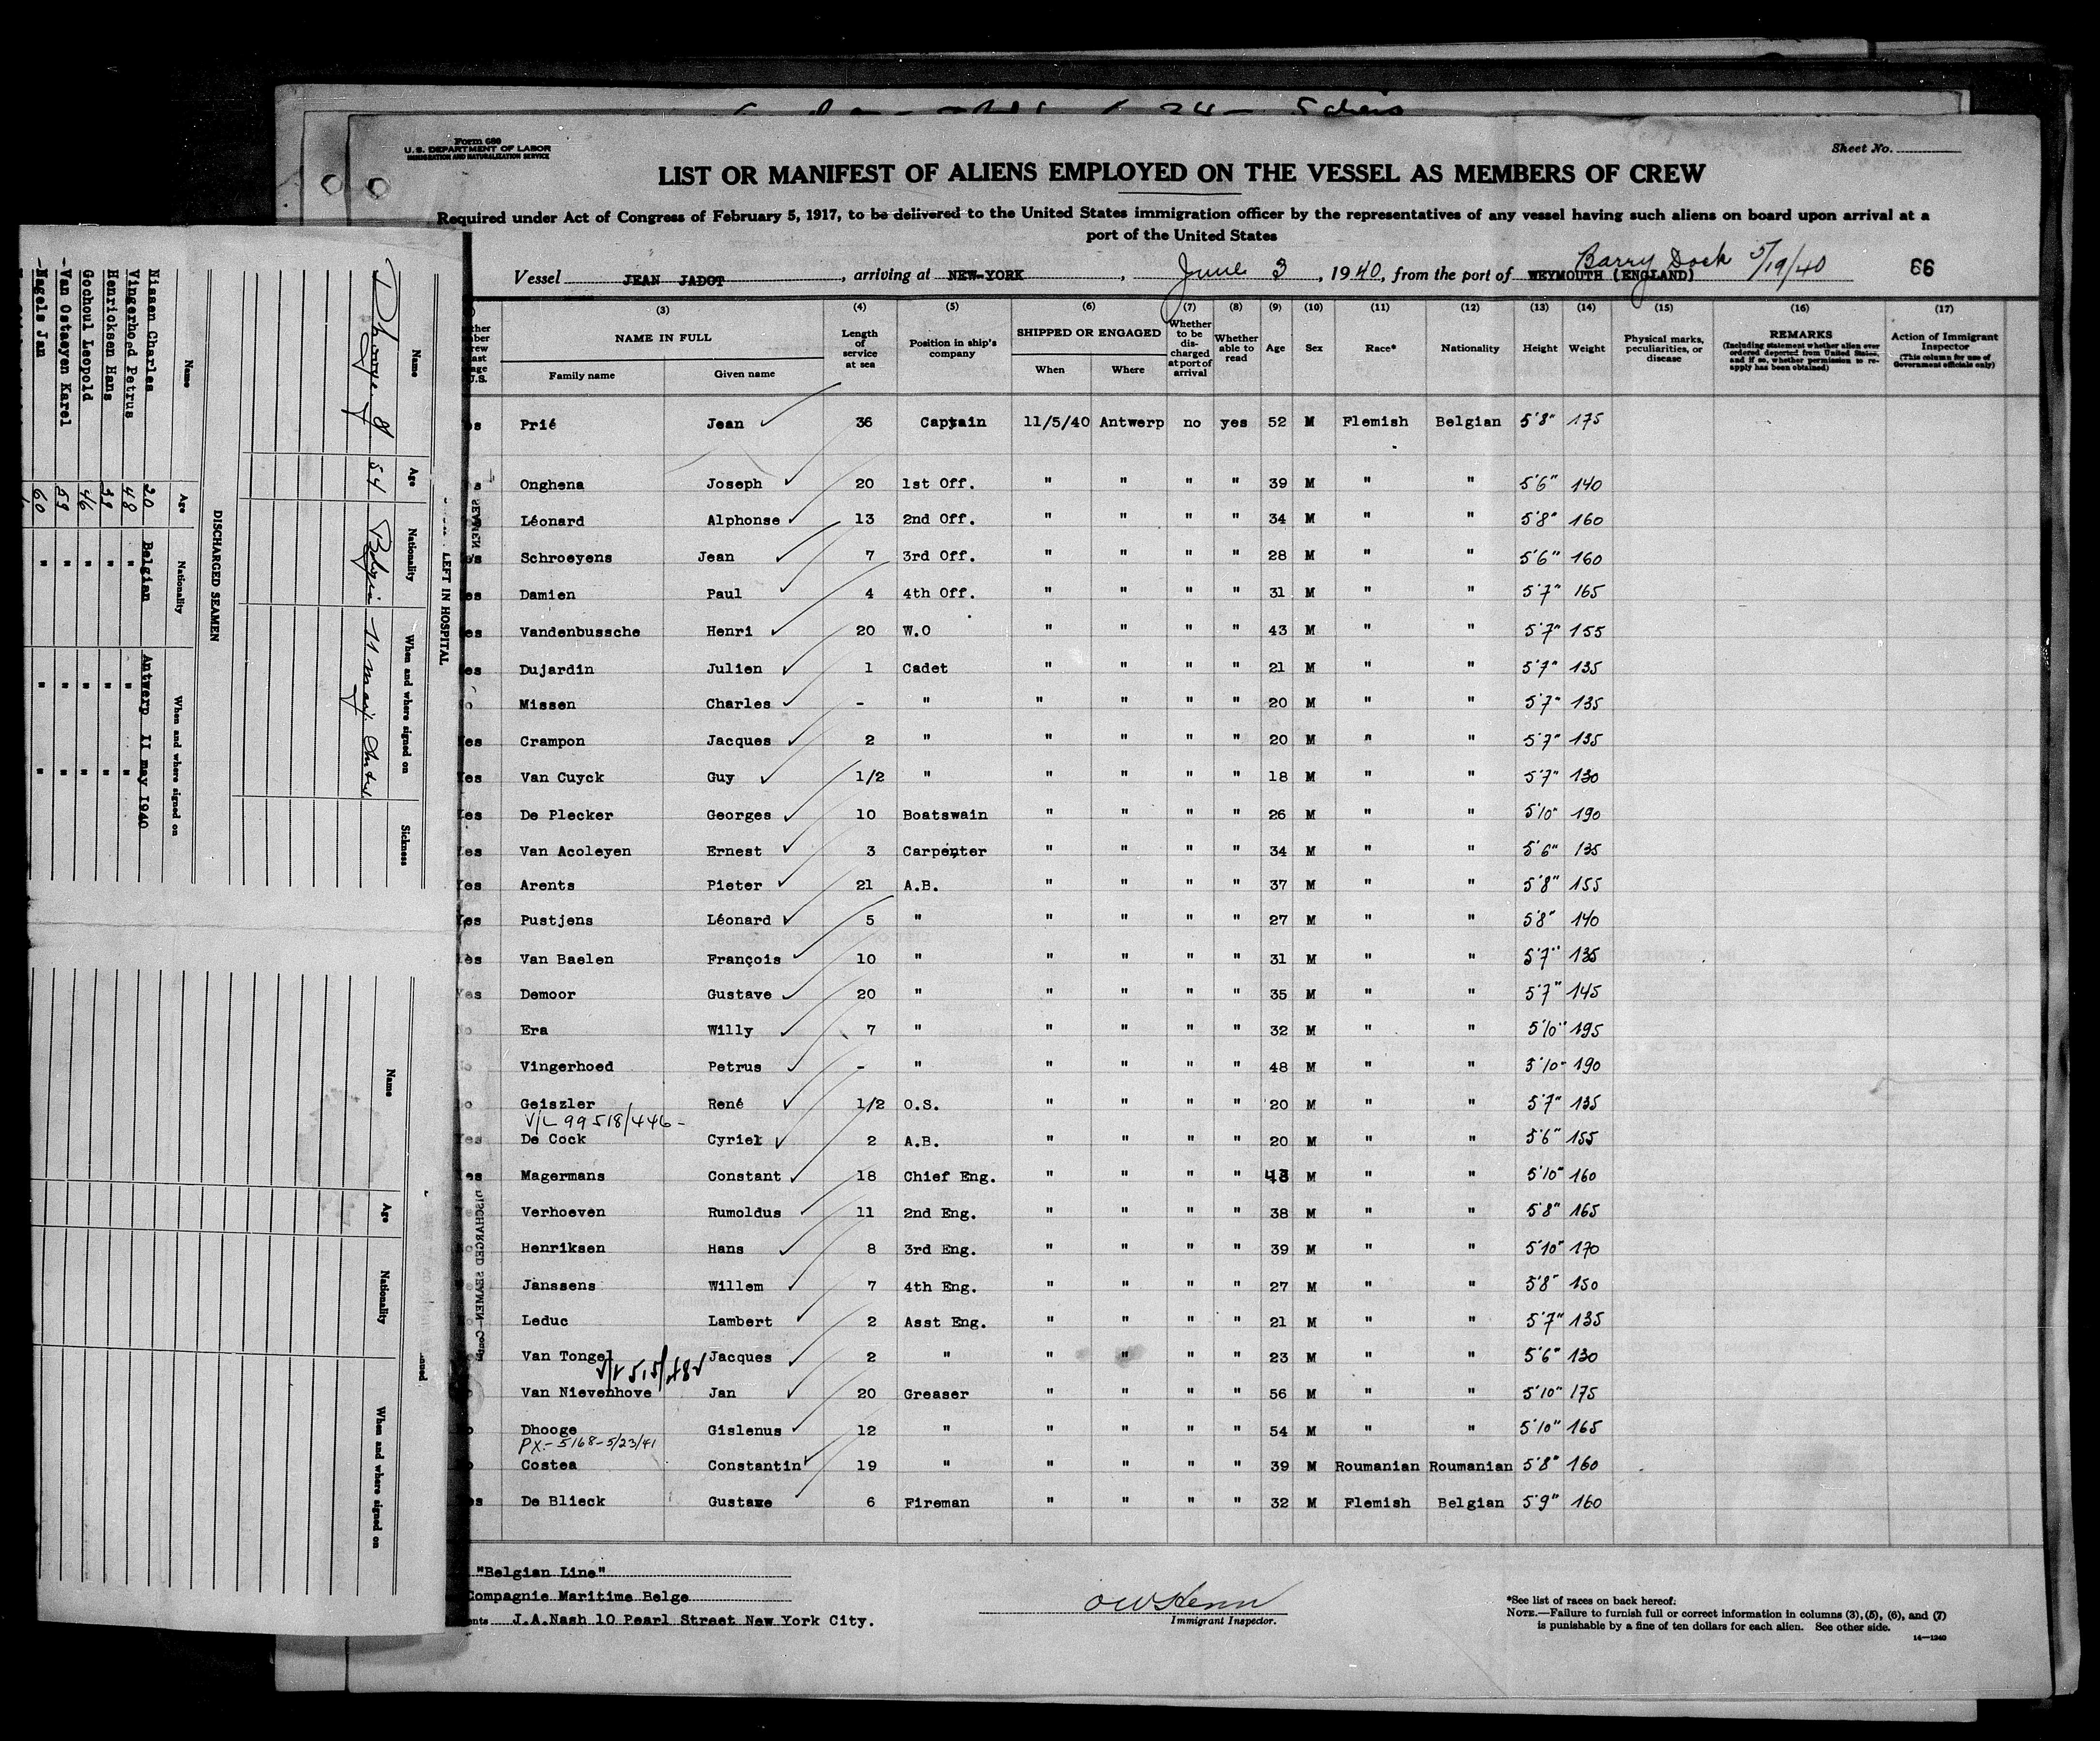 Form 680
U.S. DEPARTMENT OF LABOR
IMMIGRATION AND NATURALIZATION SERVICE
Sheet No.
LIST OR MANIFEST OF ALIENS EMPLOYED ON THE VESSEL AS MEMBERS OF CREW
Required under Act of Congress of February 5, 1917, to be delivered to the United States immigration officer by the representatives of any vessel having such aliens on board upon arrival at a
port of the United States
Barry Dock 5/19/40
Vessel JEAN JADOT, arriving at NEW-YORK, June 3, 1940, from the port of WEYMOUTH (ENGLAND) 66
(3) (4) (5) (6) (7) (8) (9) (10) (11) (12) (13) (14) (15) (16) (17)
NAME IN FULL Length of service at sea Position in ship's company SHIPPED OR ENGAGED Whether to be discharged at port of arrival Whether able to read Age Sex Race* Nationality Height Weight Physical marks, peculiarities, or disease REMARKS (Including statement whether alien ever ordered deported from United States, and if so, whether permission to reapply has been obtained) Action of Immigrant Inspector (This column for use of Government officials only)
Family name Given name When Where
Prié Jean 36 Captain 11/5/40 Antwerp no yes 52 M Flemish Belgian 5'8" 175
Onghena Joseph 20 1st Off. " " " " 39 M " " 5'6" 140
Léonard Alphonse 13 2nd Off. " " " " 34 M " " 5'8" 160
Schroeyens Jean 7 3rd Off. " " " " 28 M " " 5'6" 160
es Damien Paul 4 4th Off. " " " " 31 M " " 5'7" 165
es Vandenbussche Henri 20 W.O " " " " 43 M " " 5'7" 155
es Dujardin Julien 1 Cadet " " " " 21 M " " 5'7" 135
o Missen Charles - " " " " " 20 M " " 5'7" 135
Yes Crampon Jacques 2 " " " " " 20 M " " 5'7" 135
Yes Van Cuyck Guy 1/2 " " " " " 18 M " " 5'7" 130
Yes De Plecker Georges 10 Boatswain " " " " 26 M " " 5'10" 190
Yes Van Acoleyen Ernest 3 Carpenter " " " " 34 M " " 5'6" 135
Yes Arents Pieter 21 A.B. " " " " 37 M " " 5'8" 155
Yes Pustjens Léonard 5 " " " " " 27 M " " 5'8" 140
Yes Van Baelen François 10 " " " " " 31 M " " 5'7" 135
Yes Demoor Gustave 20 " " " " " 35 M " " 5'7" 145
o Era Willy 7 " " " " " 32 M " " 5'10" 195
o Vingerhoed Petrus - " " " " " 48 M " " 5'10" 190
o Geiszler René 1/2 O.S. " " " " 20 M " " 5'7" 135
V/L 99518/446-
Yes De Cock Cyriel 2 A.B. " " " " 20 M " " 5'6" 155
Yes Magermans Constant 18 Chief Eng. " " " " 43 M " " 5'10" 160
Verhoeven Rumoldus 11 2nd Eng. " " " " 38 M " " 5'8" 165
Henriksen Hans 8 3rd Eng. " " " " 39 M " " 5'10" 170
Janssens Willem 7 4th Eng. " " " " 27 M " " 5'8" 150
Leduc Lambert 2 Asst Eng. " " " " 21 M " " 5'7" 135
Van Tongel Jacques 2 " " " " " 23 M " " 5'6" 130
Van Nievenhove Jan 20 Greaser " " " " 56 M " " 5'10" 175
Dhooge Gislenus 12 " " " " " 54 M " " 5'10" 165
PX-5168-5/23/41
Costea Constantin 19 " " " " " 39 M Roumanian Roumanian 5'8" 160
es De Blieck Gustave 6 Fireman " " " " 32 M Flemish Belgian 5'9" 160
"Belgian Line"
Compagnie Maritime Belge
ents J.A.Nash 10 Pearl Street New York City.
Immigrant Inspector.
*See list of races on back hereof.
NOTE.—Failure to furnish full or correct information in columns (3), (5), (6), and (7)
is punishable by a fine of ten dollars for each alien. See other side.
14—1240
LEFT IN HOSPITAL
Name Age Nationality When and where signed on Sickness
Dhooge g 54 Belgian 11 may
DISCHARGED SEAMEN
Name Age Nationality When and where signed on
Nissen Charles 20 Belgian Antwerp II may 1940
Vingerhoed Petrus 48 " " "
Henricksen Hans 39 " " "
Gochoul Leopold 46 " " "
-Van Ostaeyen Karel 59 " " "
-Nagels Jan 60 " " "
Name Age Nationality When and where signed on
DISCHARGED SEAMEN